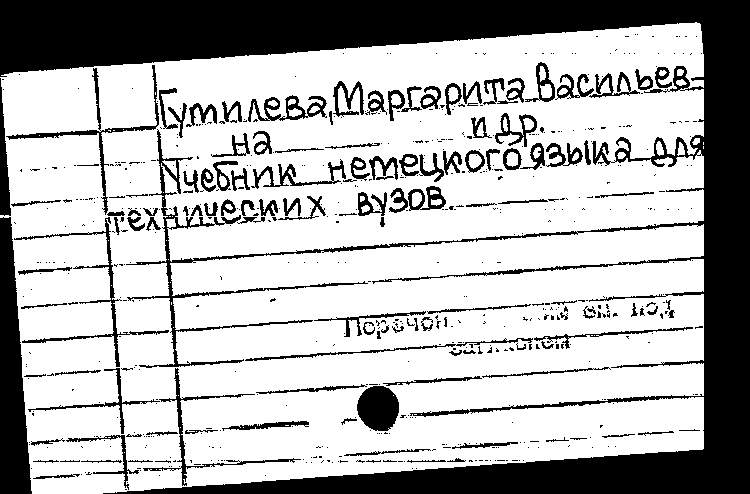 Гутилева, Маргарита Васильев-
на и др.
Учебник немецкого языка для
технических вузов.
см. под
заголовком